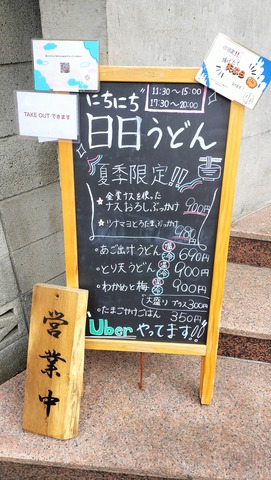 TAKE OUT できます
にちにち
11:30～15:00
17:30～20:00
日日うどん
夏季限定!!
★金美ナスを使った
ナスおろしぶっかけ 900円
★ツナマヨとろたまぶっかけ
980円
・あご出汁うどん 温 冷 690円
・とり天うどん 温 冷 900円
・わかめと梅 温 冷 900円
大盛りプラス300円
・たまごかけごはん 350円
Uber やってます!!
営業中